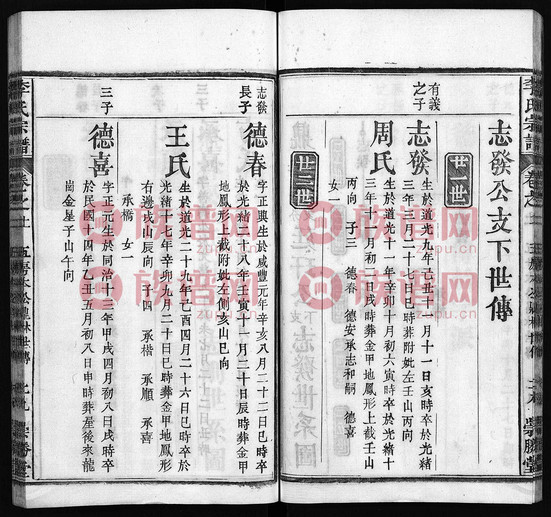 李氏宗譜
志發公支下世傳
廿一世
有義之子
志發
生於道光九年己丑十二月十一日亥時卒於光緒十
三年三月二十七日巳時葬附妣左壬山丙向
周氏
生於道光十一年辛卯十月初六寅時卒於光緒十
三年十一月初三日戌時葬金甲地鳳形上截壬山
丙向 子三 德春 德安承志和嗣 德喜
女一
廿二世
崇勝堂
李氏宗譜
志發長子
德春
字正興生於咸豐元年辛亥八月二十二日巳時卒
於光緒二十八年壬寅十一月二十日辰時葬金甲
地鳳形上截附妣左側亥山巳向
王氏
生於道光二十九年己酉四月二十六日巳時卒於
光緒十七年辛卯九月二十日巳時葬金甲地鳳形
右邊戌山辰向 子四 承楷 承順 承喜
承橋 女一
三子
德喜
字正元生於同治十三年甲戌四月初八日戌時卒
於民國十四年乙丑五月初八日申時葬屋後來龍
崗金星子山午向
崇勝堂
族譜網